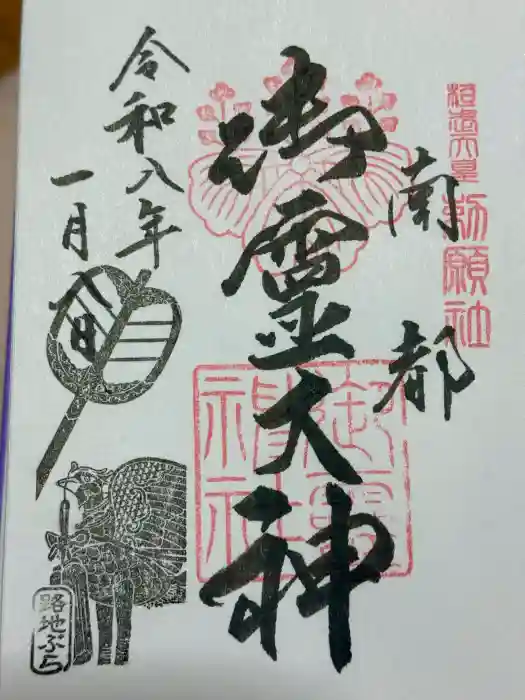 桓武天皇勅願社
南都
御靈大神
御霊神社
令和八年
一月八日
路地ぶら